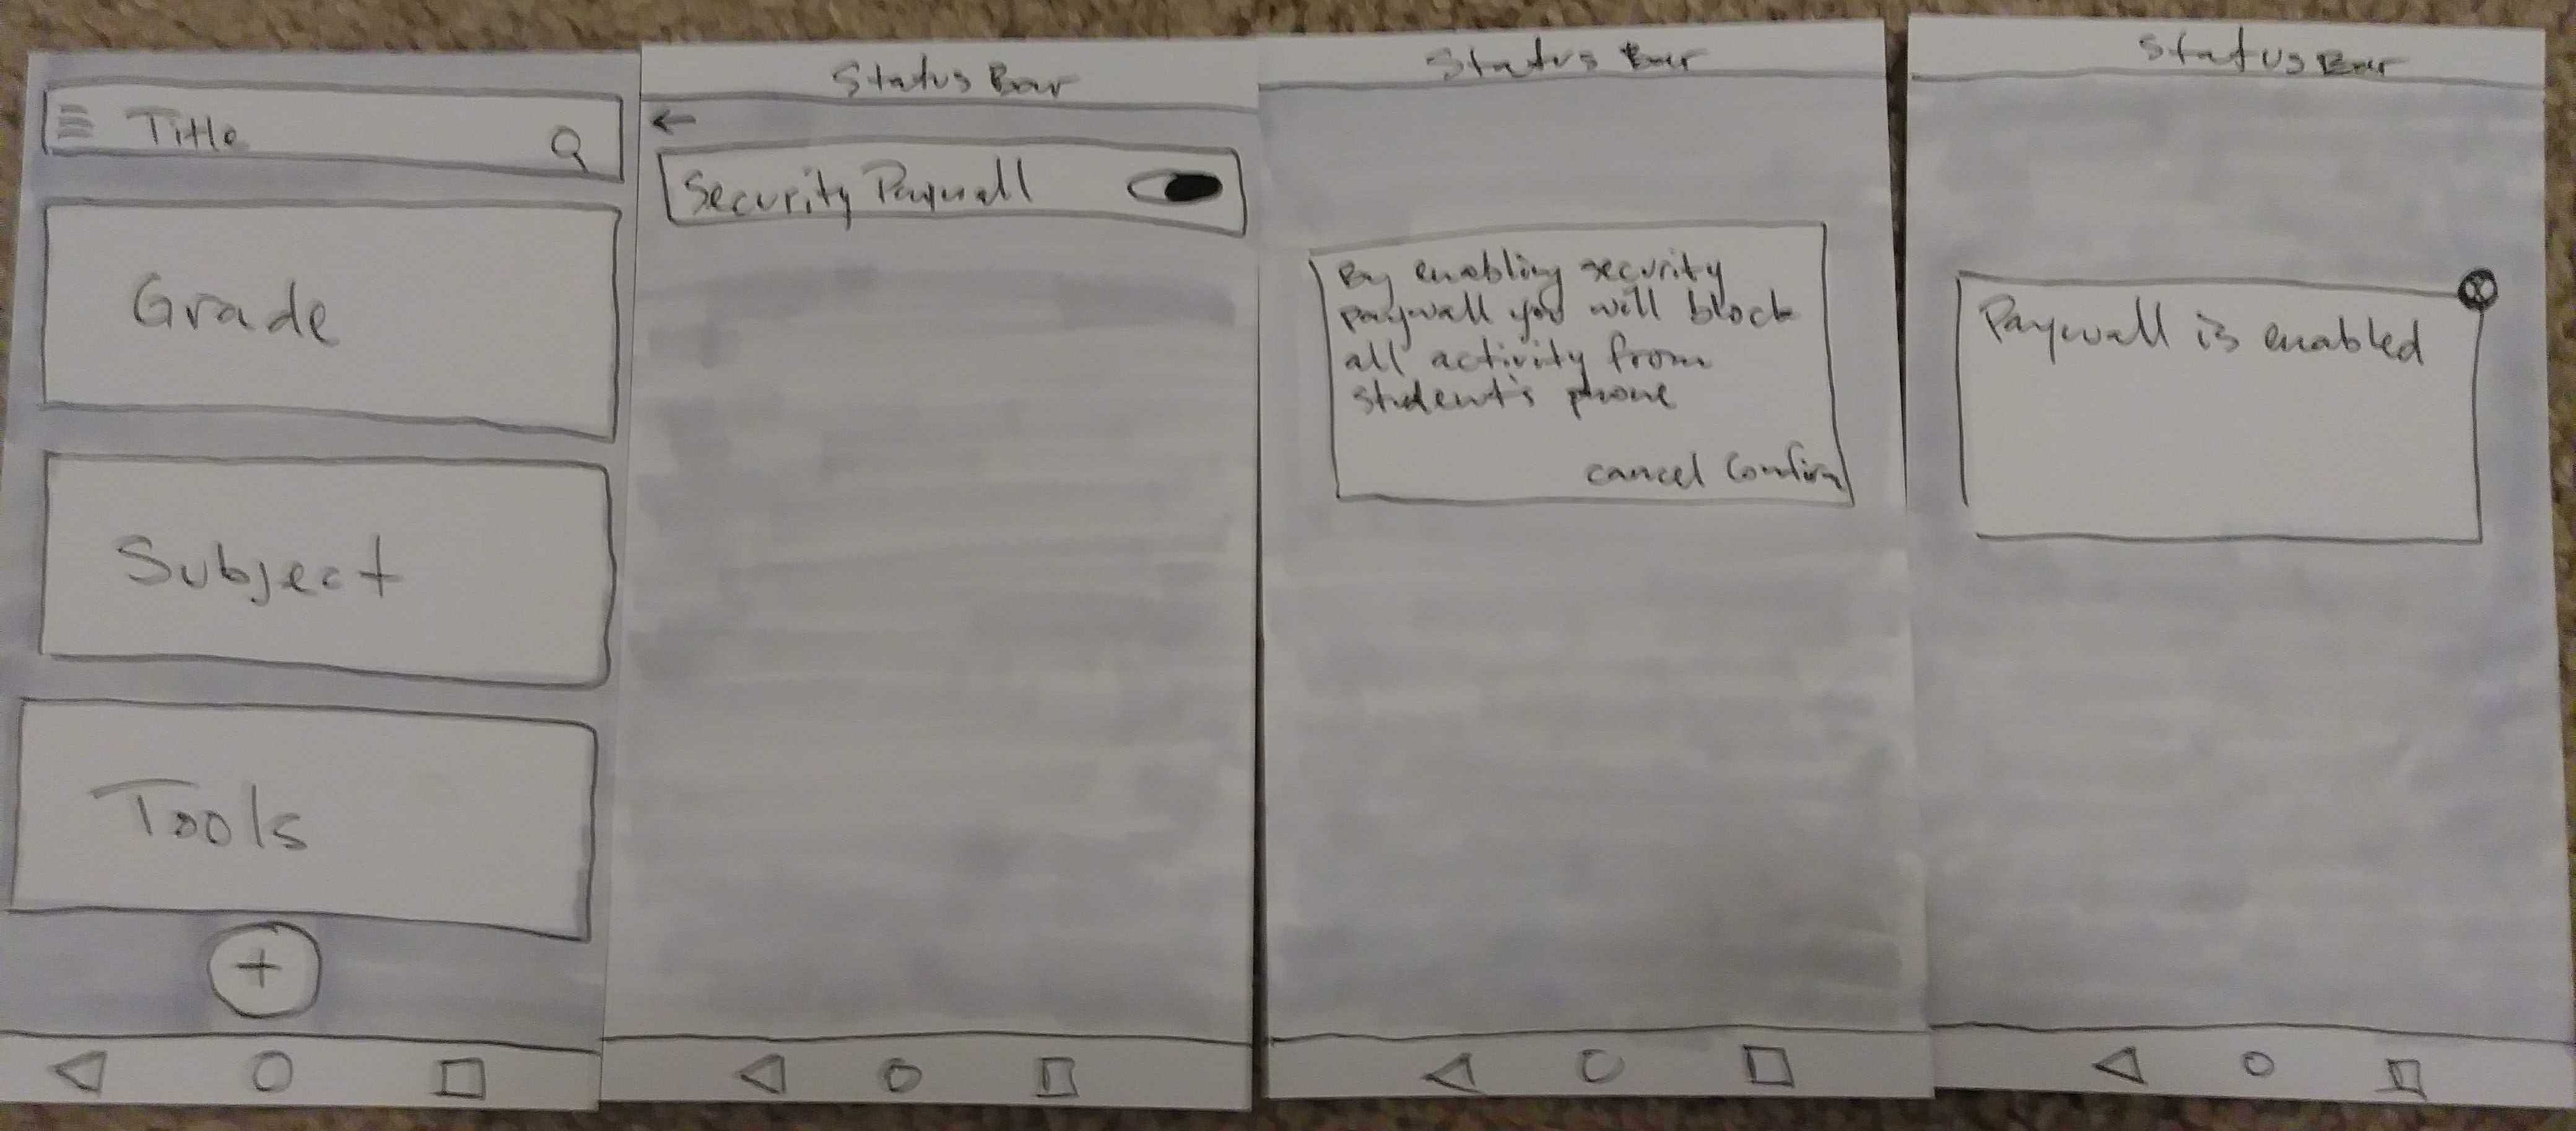 Title
Grade
Subject
Tools
+
Status Bar
←
Security Paywall
Status Bar
By enabling security
paywall you will block
all activity from
student's phone
cancel Confirm
Status Bar
Paywall is enabled